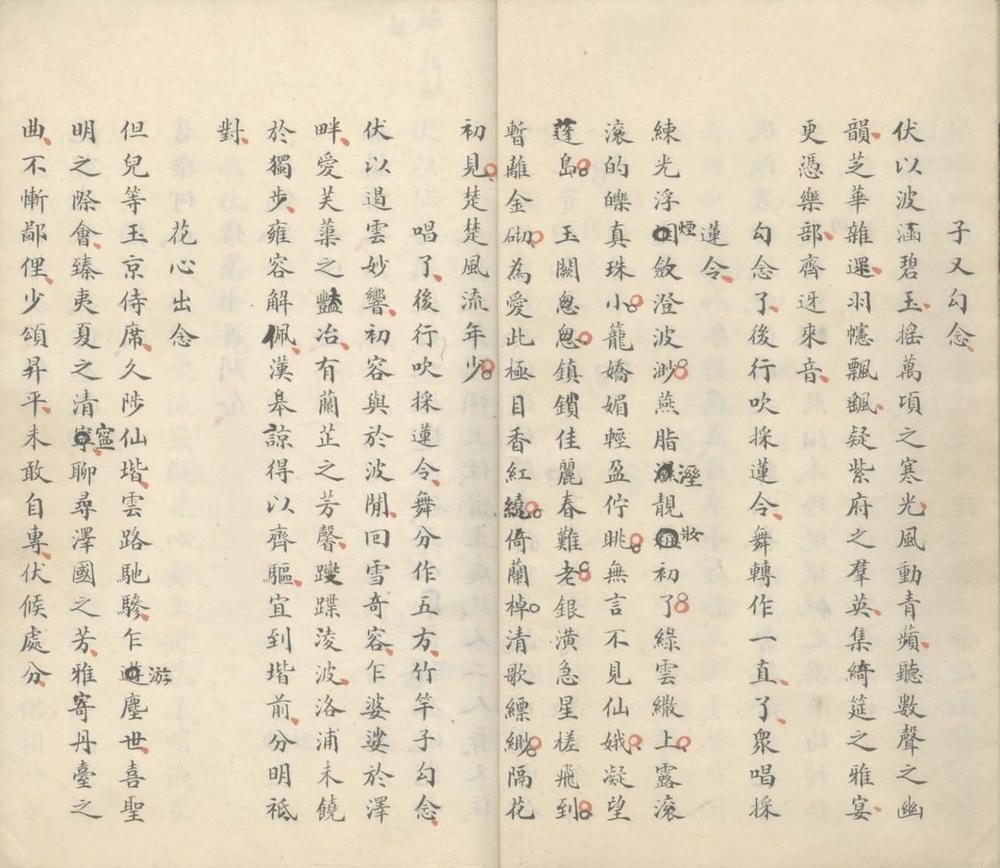 子又勾念
伏以波涵碧玉摇萬頃之寒光風動青蘋聽數聲之幽
韻芝華雜遝羽幰飄颻疑紫府之羣英集綺筵之雅宴
更憑樂部齊迓來音
勾念了後行吹採蓮令舞轉作一直了衆唱採
蓮令
練光浮煙斂澄波渺燕脂溼靚妝初了綠雲繖上露滾
滾的皪真珠小籠嬌媚輕盈佇眺無言不見仙娥凝望
蓬島玉闕怱怱鎮鎖佳麗春難老銀潢急星槎飛到
暫離金砌為愛此極目香紅繞倚蘭棹清歌縹緲隔花
初見楚楚風流年少
唱了後行吹採蓮令舞分作五方竹竿子勾念
伏以遏雲妙響初容與於波閒回雪奇容乍婆娑於澤
畔愛芙蕖之豔冶有蘭芷之芳馨躞蹀淩波洛浦未饒
於獨步雍容解佩漢皋諒得以齊驅宜到堦前分明祗
對
花心出念
但兒等玉京侍席久陟仙堦雲路馳驂乍游塵世喜聖
明之際會臻夷夏之清寍聊尋澤國之芳雅寄丹臺之
曲不慚鄙俚少頌昇平未敢自專伏候處分